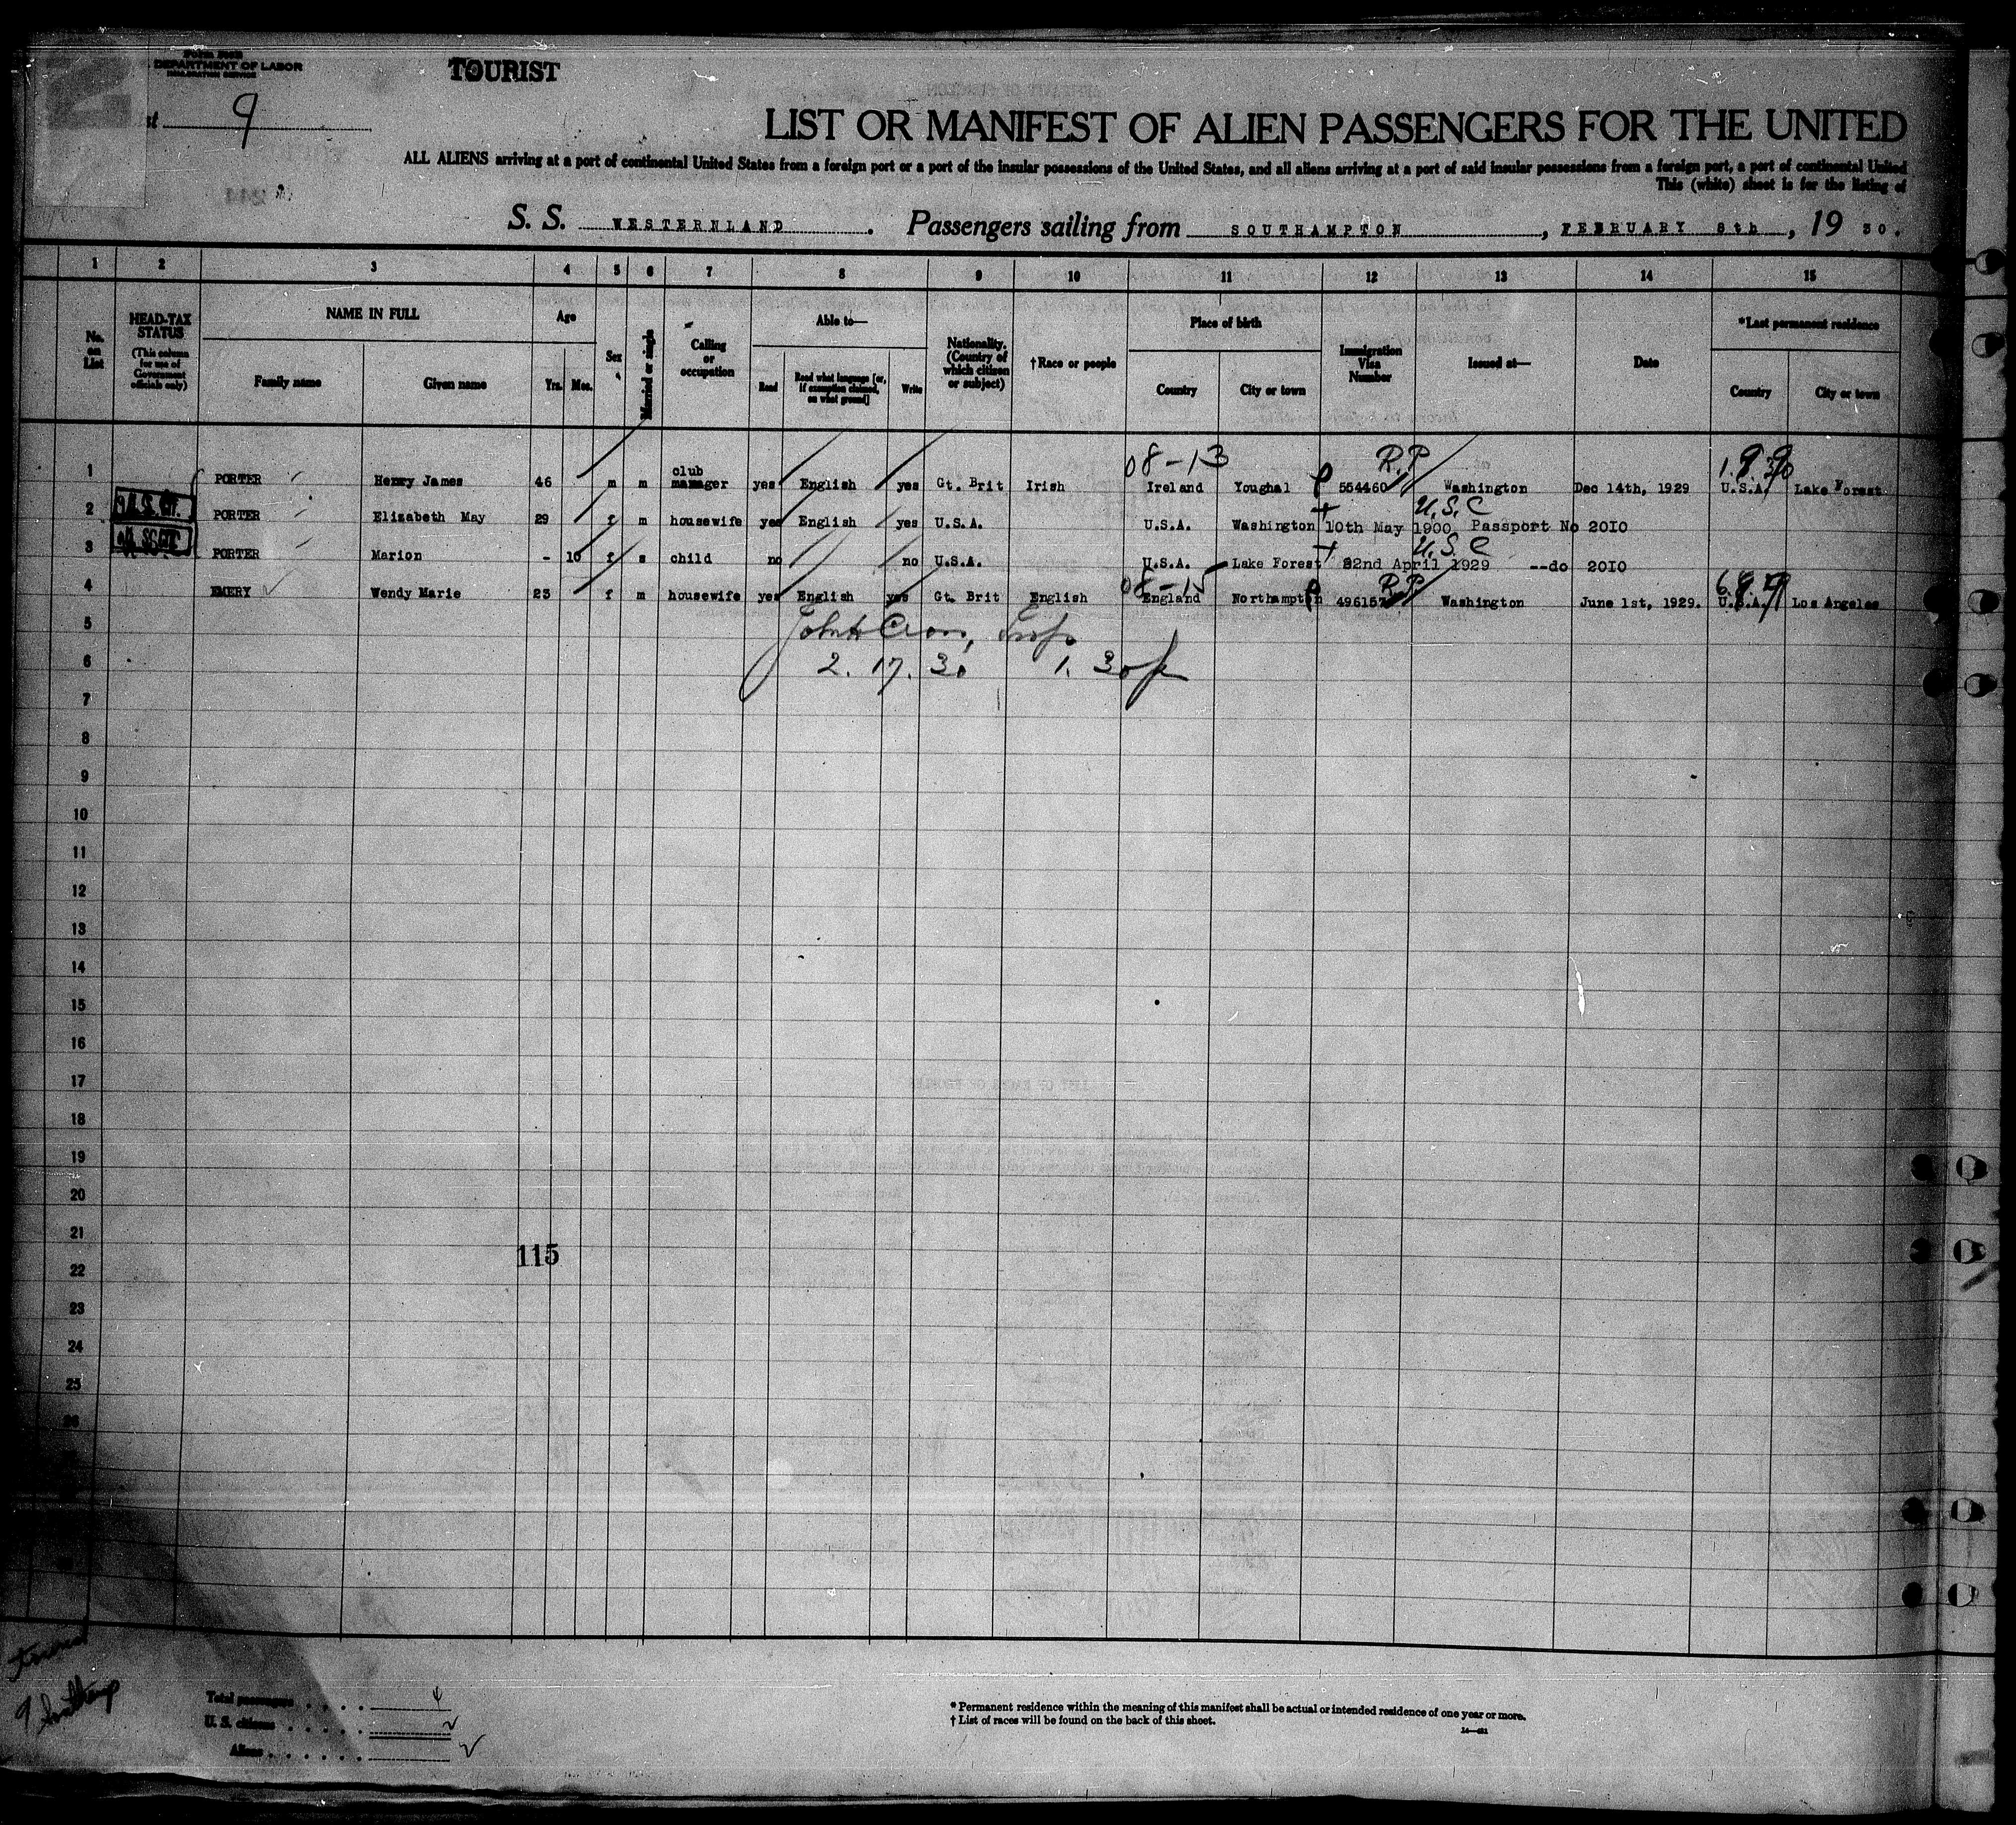 DEPARTMENT OF LABOR
TOURIST
9
LIST OR MANIFEST OF ALIEN PASSENGERS FOR THE UNITED
ALL ALIENS arriving at a port of continental United States from a foreign port or a port of the insular possessions of the United States, and all aliens arriving at a port of said insular possessions from a foreign port, a port of continental United
This (white) sheet is for the listing of
S. S. WESTERNLAND. Passengers sailing from SOUTHAMPTON, FEBRUARY 8th, 19 30.
1 2 3 4 5 6 7 8 9 10 11 12 13 14 15
No. on List
HEAD-TAX STATUS (This column for use of Government officials only)
NAME IN FULL
Family name Given name
Age
Yrs. Mos.
Sex
Married or single
Calling or occupation
Able to—
Read Read what language [or, if exemption claimed, on what ground] Write
Nationality. (Country of which citizen or subject)
†Race or people
Place of birth
Country City or town
Immigration Visa Number
Issued at—
Date
*Last permanent residence
Country City or town
08-13 R.P. 1.9.30
1 PORTER Henry James 46 m m club manager yes English yes Gt. Brit Irish Ireland Youghal 554460 Washington Dec 14th, 1929 U.S.A. Lake Forest
U.S.C
2 PORTER Elizabeth May 29 f m housewife yes English yes U.S.A. U.S.A. Washington 10th May 1900 Passport No 2010
U.S.C
3 PORTER Marion - 10 f s child no no U.S.A. U.S.A. Lake Forest 22nd April 1929 --do 2010
08-15 R.P.
4 EMERY Wendy Marie 23 f m housewife yes English yes Gt. Brit English England Northampton 496157 Washington June 1st, 1929. U.S.A. Los Angeles
5
6 2. 17. 30 1. 30 p
7
8
9
10
11
12
13
14
15
16
17
18
19
20
21
115
22
23
24
25
26
Total passengers
U. S. citizens
Aliens
* Permanent residence within the meaning of this manifest shall be actual or intended residence of one year or more.
† List of races will be found on the back of this sheet.